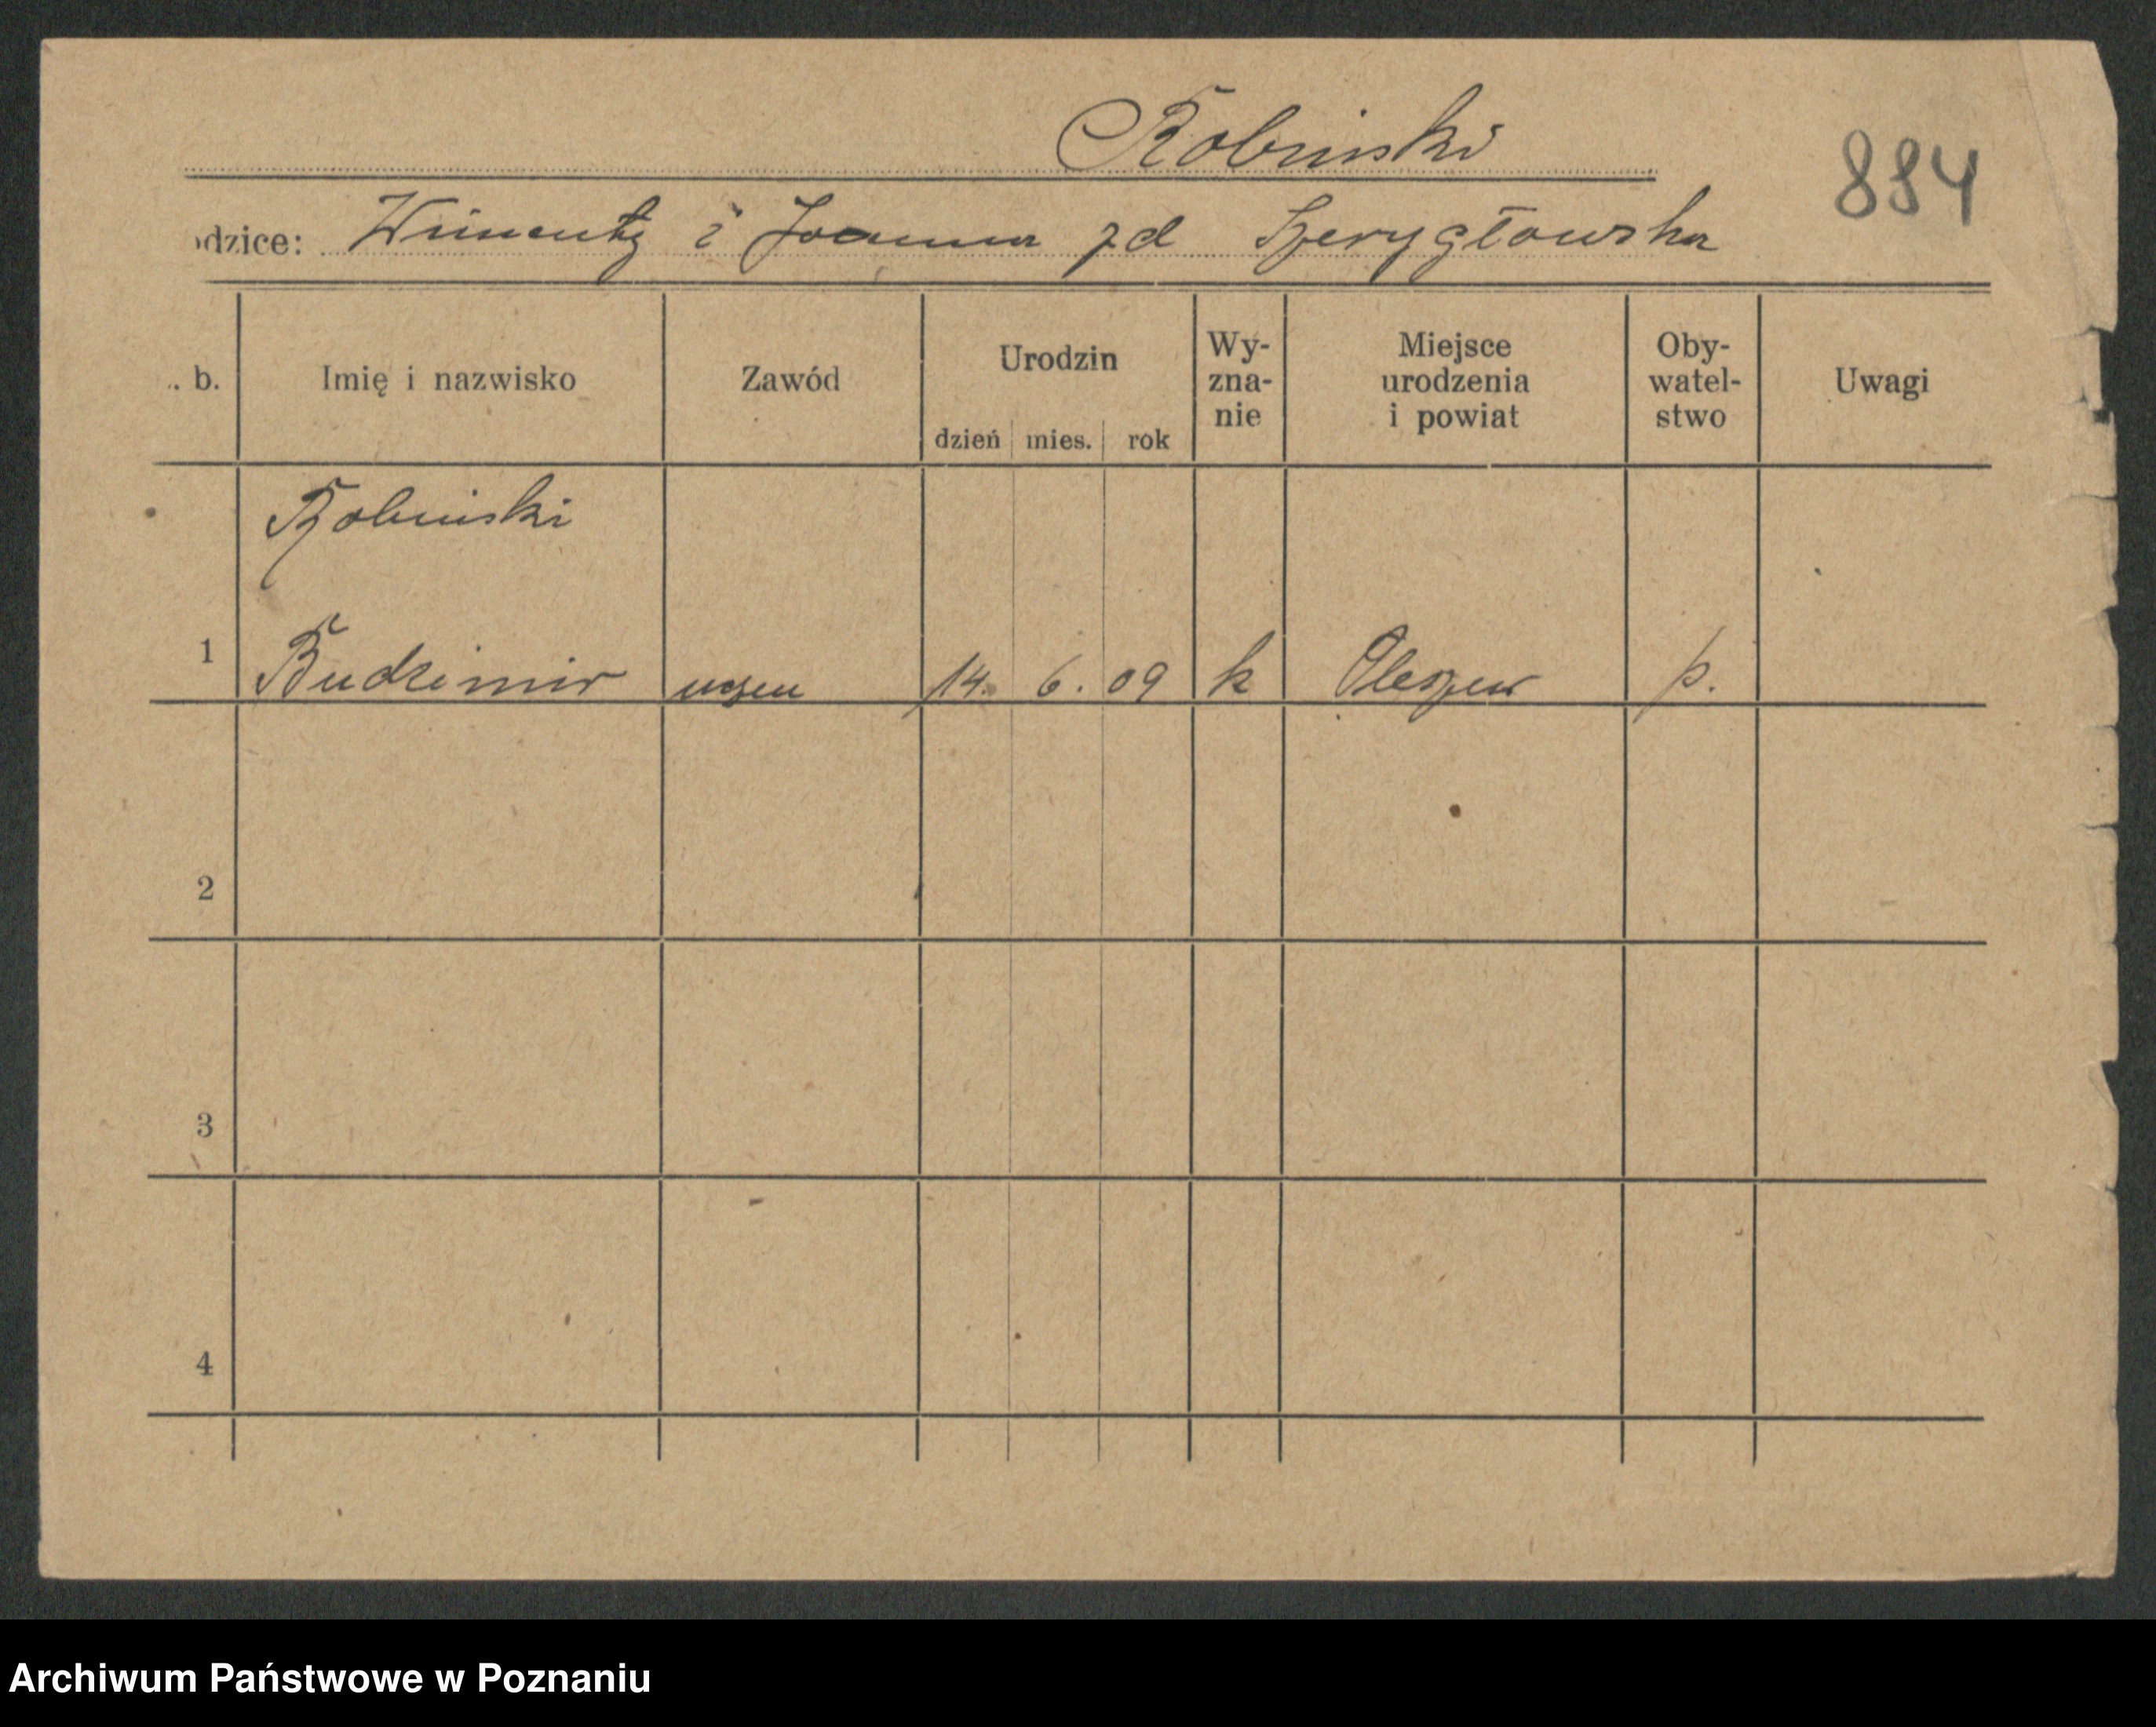 Robinski
884
odzice: Wincenty i Joanna zd Szczygłowska
. b.
Imię i nazwisko
Zawód
Urodzin
dzień mies. rok
Wy-
zna-
nie
Miejsce
urodzenia
i powiat
Oby-
watel-
stwo
Uwagi
Robinski
1 Budzimir uczeń 14. 6. 09 k Pleszew p.
2
3
4
Archiwum Państwowe w Poznaniu